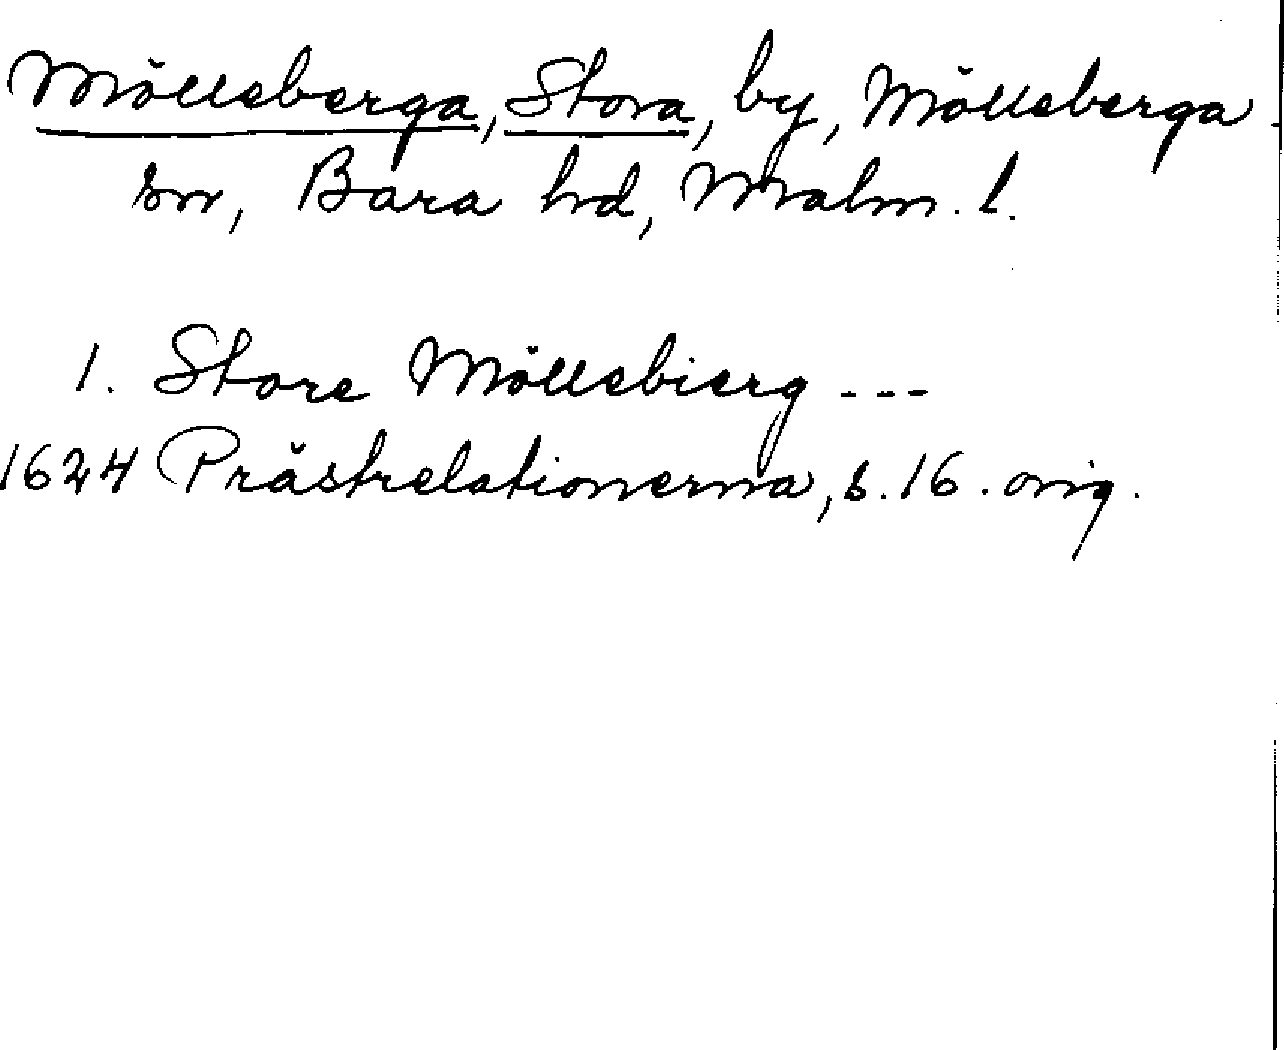 Mölleberga, Stora, by, Mölleberga
sn, Bara hd, Malm. l.
1. Store Möllebierg ---
1624 Prästrelationerna, s. 16. orig.